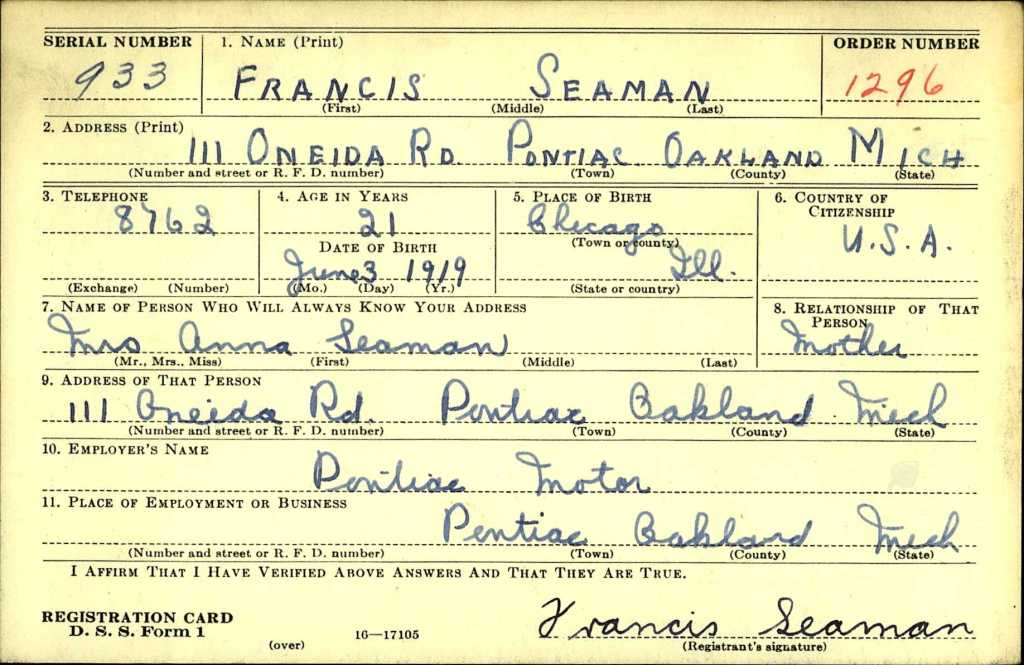 SERIAL NUMBER 1. NAME (Print) ORDER NUMBER
933 FRANCIS SEAMAN 1296
(First) (Middle) (Last)
2. ADDRESS (Print)
111 ONEIDA RD PONTIAC OAKLAND MICH
(Number and street or R. F. D. number) (Town) (County) (State)
3. TELEPHONE 4. AGE IN YEARS 5. PLACE OF BIRTH 6. COUNTRY OF CITIZENSHIP
8762 21 Chicago U.S.A.
(Town or county)
DATE OF BIRTH
June 3 1919 Ill.
(Exchange) (Number) (Mo.) (Day) (Yr.) (State or country)
7. NAME OF PERSON WHO WILL ALWAYS KNOW YOUR ADDRESS 8. RELATIONSHIP OF THAT PERSON
Mrs Anna Seaman Mother
(Mr., Mrs., Miss) (First) (Middle) (Last)
9. ADDRESS OF THAT PERSON
111 Oneida Rd. Pontiac Oakland Mich
(Number and street or R. F. D. number) (Town) (County) (State)
10. EMPLOYER'S NAME
Pontiac Motor
11. PLACE OF EMPLOYMENT OR BUSINESS
Pontiac Oakland Mich
(Number and street or R. F. D. number) (Town) (County) (State)
I AFFIRM THAT I HAVE VERIFIED ABOVE ANSWERS AND THAT THEY ARE TRUE.
REGISTRATION CARD
D. S. S. Form 1 16—17105 Francis Seaman
(over) (Registrant's signature)